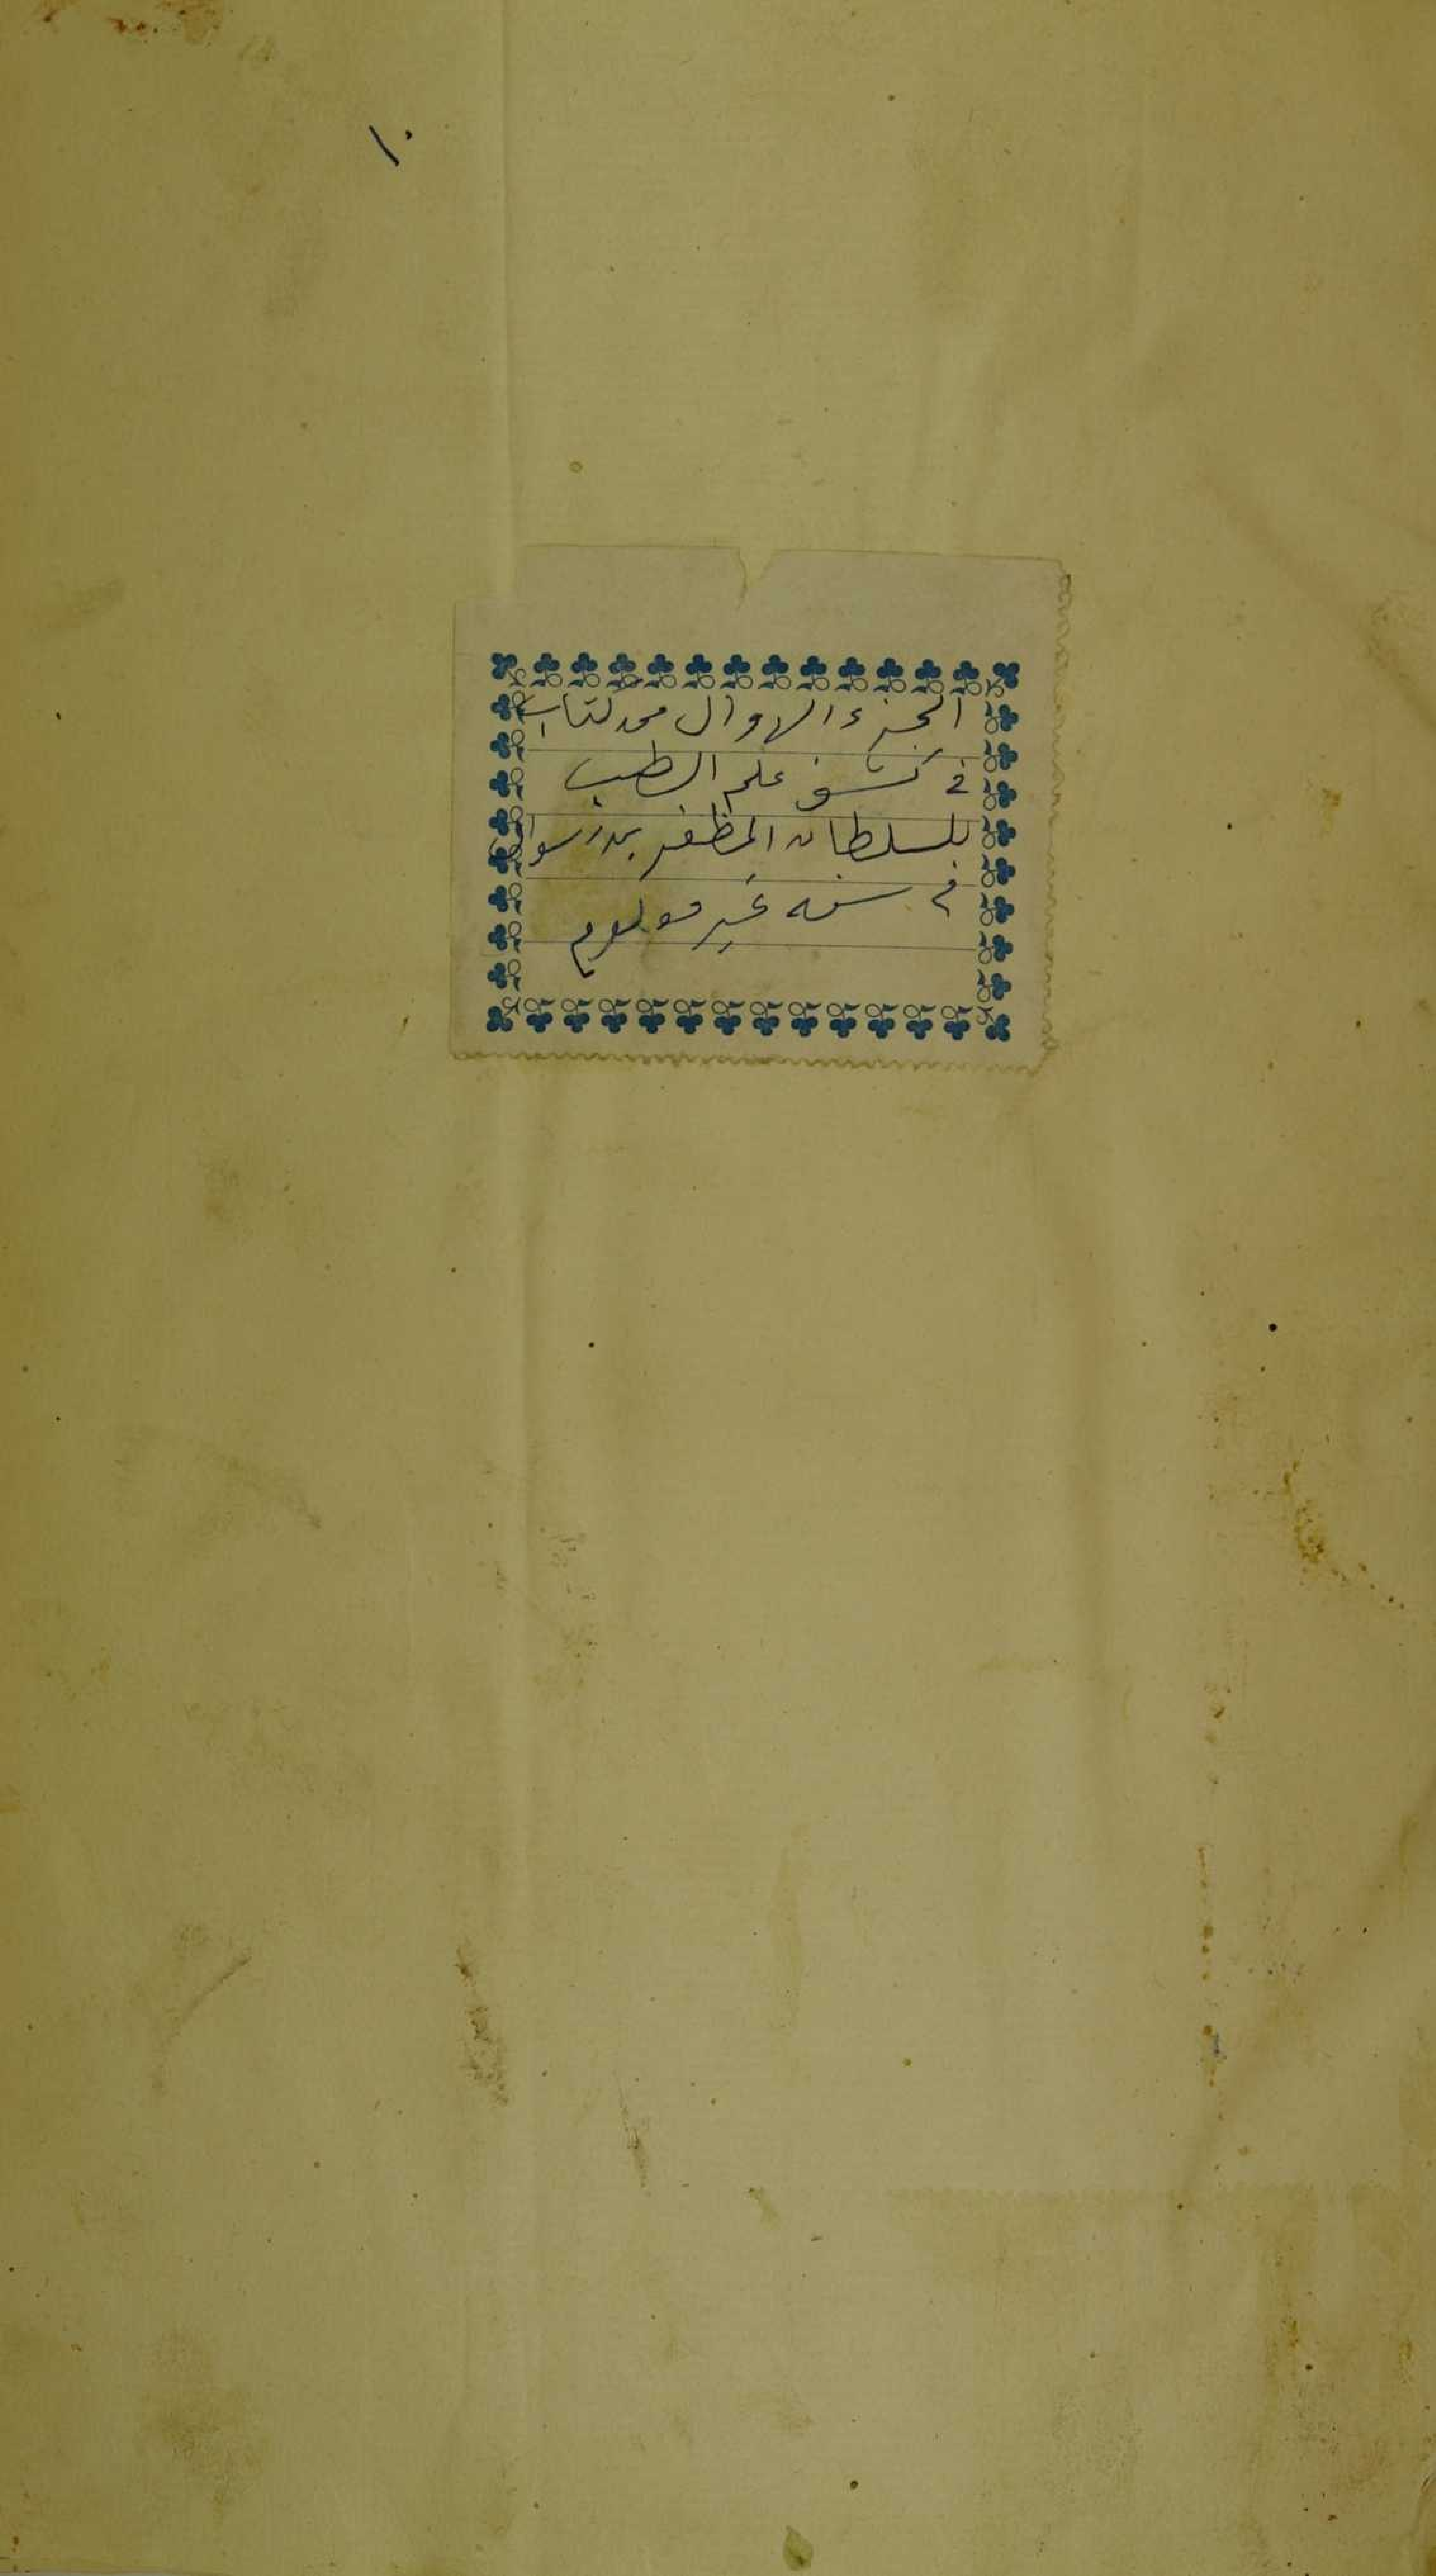 ١٠
الجزء الاول من كتاب
في كشف علم الطب
للسلطان المظفر بن رسول
في سنة غير معلوم